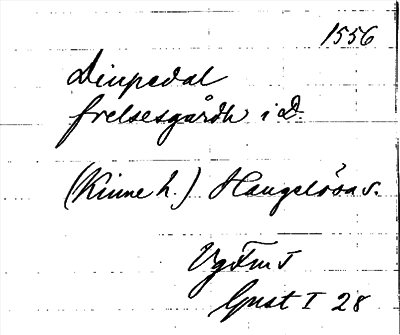 1556
Dinpedal
frelsesgårdh i D.
(Kinne h.) Hangelösa s.
Vg Fm 5
Gust I 28